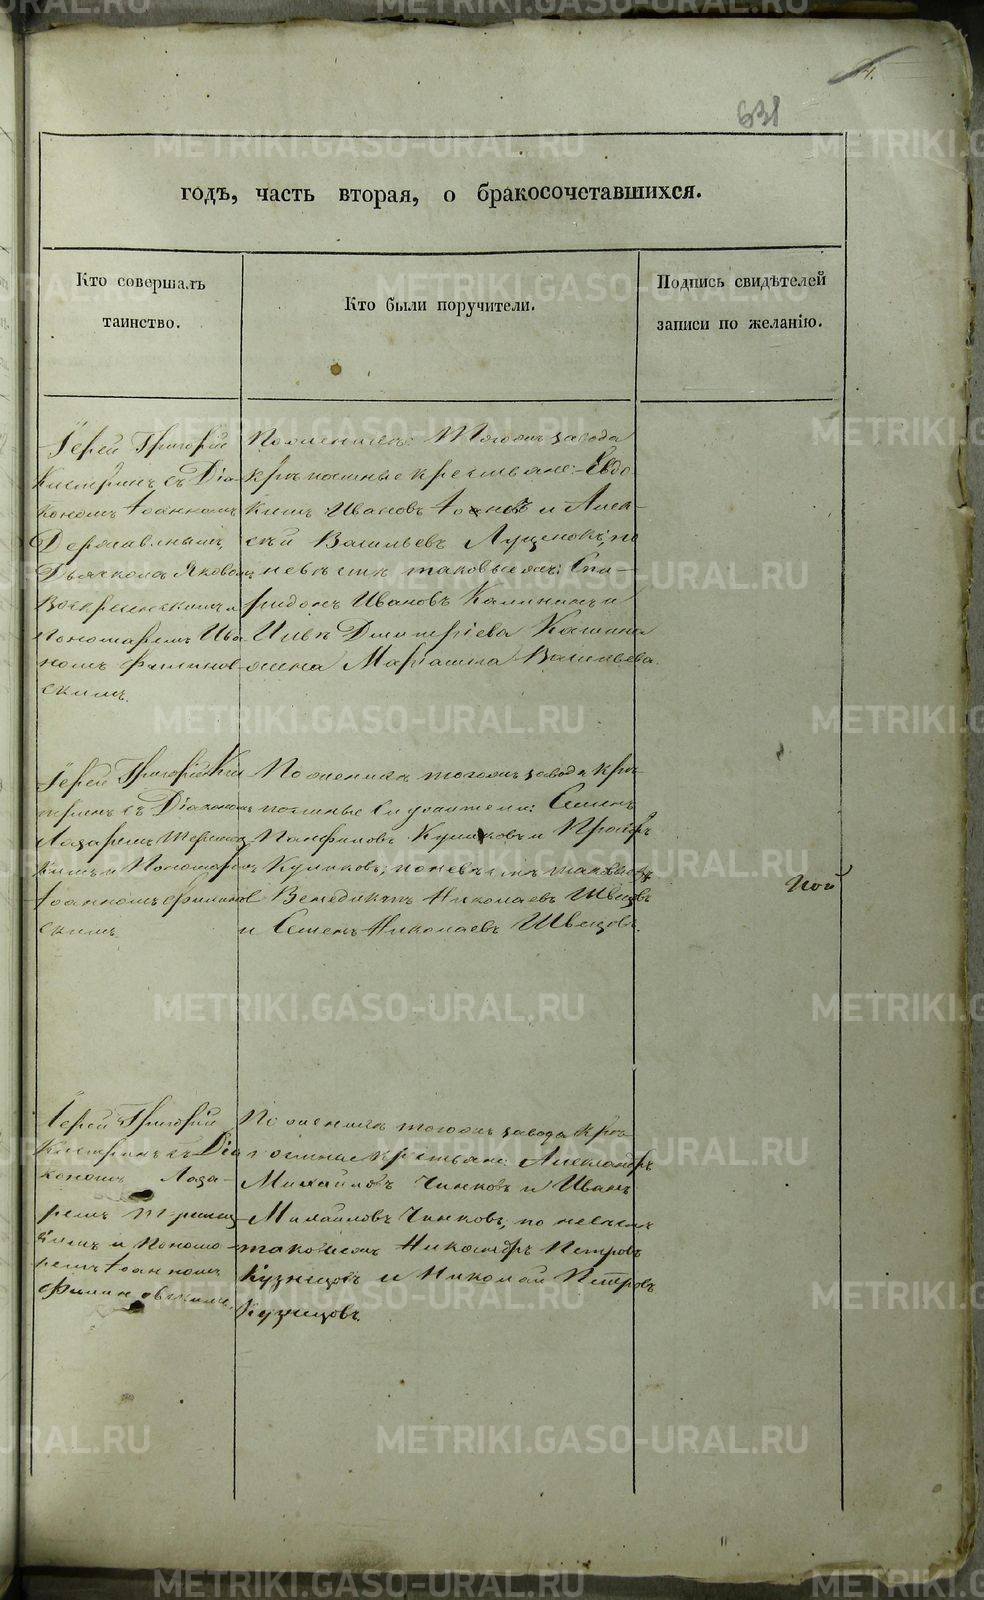 631
годъ, часть вторая, о бракосочетавшихся.
Кто совершалъ
таинство.
Кто были поручители.
Подпись свидѣтелей
записи по желанію.
Іерей Григорій
съ Діа-
кономъ Іоанномъ
Державинымъ,
Дьячкомъ Яковомъ
Воскресенскимъ и
пономаремъ Ива
номъ Филинов-
скимъ.
По женихѣ: Тогожъ завода
крѣпостные крестьяне: Евдо
кимъ Ивановъ и Алек-
сѣй Васильевъ по
невѣстѣ таковыежъ: Спи-
ридонъ Ивановъ Калининъ и
Дмитріева
жена Маріамна Васильева.
Іерей Григорій
съ Діакономъ
Лазаремъ
и Пономаремъ
Іоанномъ Филинов
скимъ
По женихѣ тогожъ завода крѣ-
постные Семенъ
Панфиловъ Куликовъ и
Куликовъ, по невѣстѣ таковыежъ
Венедиктъ Николаевъ Швецовъ
и Семенъ Николаевъ Швецовъ.
Іерей Григорій
съ Діа
кономъ Лаза-
ремъ
и Понома-
ремъ Іоанномъ
Филиновскимъ.
По женихѣ тогожъ завода крѣ-
постные крестьяне: Александръ
Михайловъ Чинковъ и Иванъ
Михайловъ Чинковъ, по невѣстѣ
таковыежъ Никаноръ Петровъ
Кузнецовъ и Николай Петровъ
Кузнецовъ.
METRIKI.GASO-URAL.RU